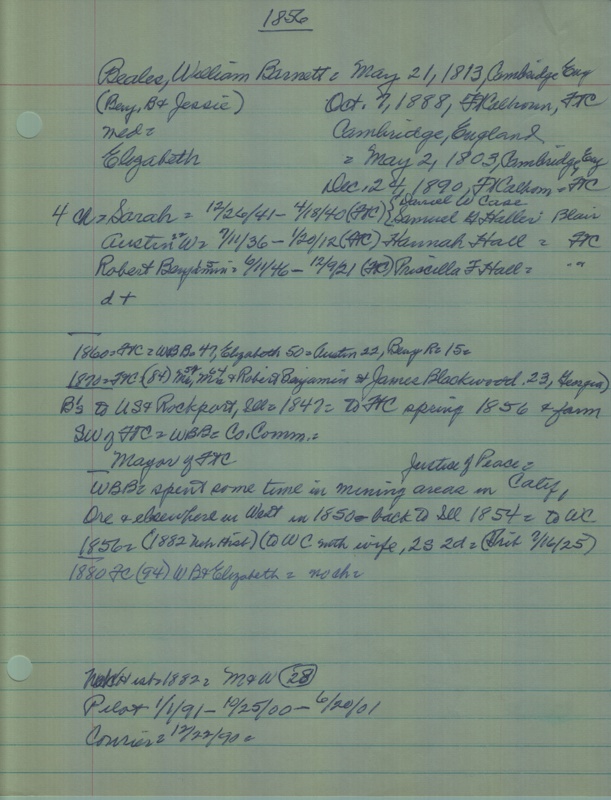 1856
Beales, William Barnett = May 21, 1813, Cambridge Eng
(Benj. B & Jessie) Oct. 7, 1888, Ft Calhoun, FTC
med = Cambridge, England
Elizabeth = May 2, 1803, Cambridge, Eng
Dec. 24, 1890, Ft Calhoun = FTC
4 ch = Sarah = 12/26/41 - 4/18/40 (FTC) { Daniel W Case
{ Samuel H Heller: Blair
Austin W = 9/11/36 - 1/20/12 (FTC) Hannah Hall = FTC
Robert Benjamin = 6/11/46 - 12/9/21 (FTC) Priscilla F Hall = "
d +
1860 = FTC = WBB = 47, Elizabeth 50 = Austin 22, Benj R = 15 =
1870 = FTC = (84) & Robert Benjamin & James Blackwood, 23, Georgia)
B's to US & Rockport, Ill = 1847 = to FTC spring 1856 & farm
SW of FTC = WBB = Co. Comm. =
Mayor of FTC Justice of Peace =
WBB = spent some time in mining areas in Calif,
Ore & elsewhere in West in 1850 = back to Ill 1854 = to WC
1856 = (1882 Neb Hist) (to WC with wife, 2S 2d = (Trib 7/16/25)
1880 FC (94) WB & Elizabeth = no ch =
Neb Hist = 1882 = M & W (28)
Pilot 1/1/91 - 10/25/00 - 6/20/01
Courier = 12/22/90 =